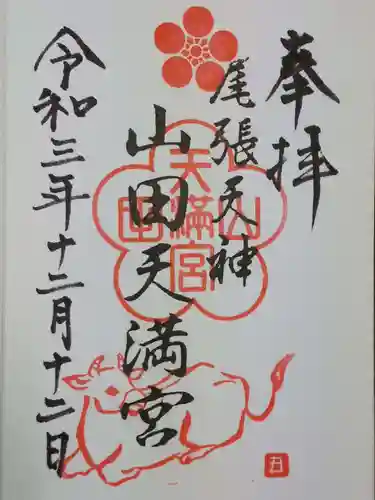 奉拝
尾張天神
山田天満宮
令和三年十二月十二日
山田天満宮
丑